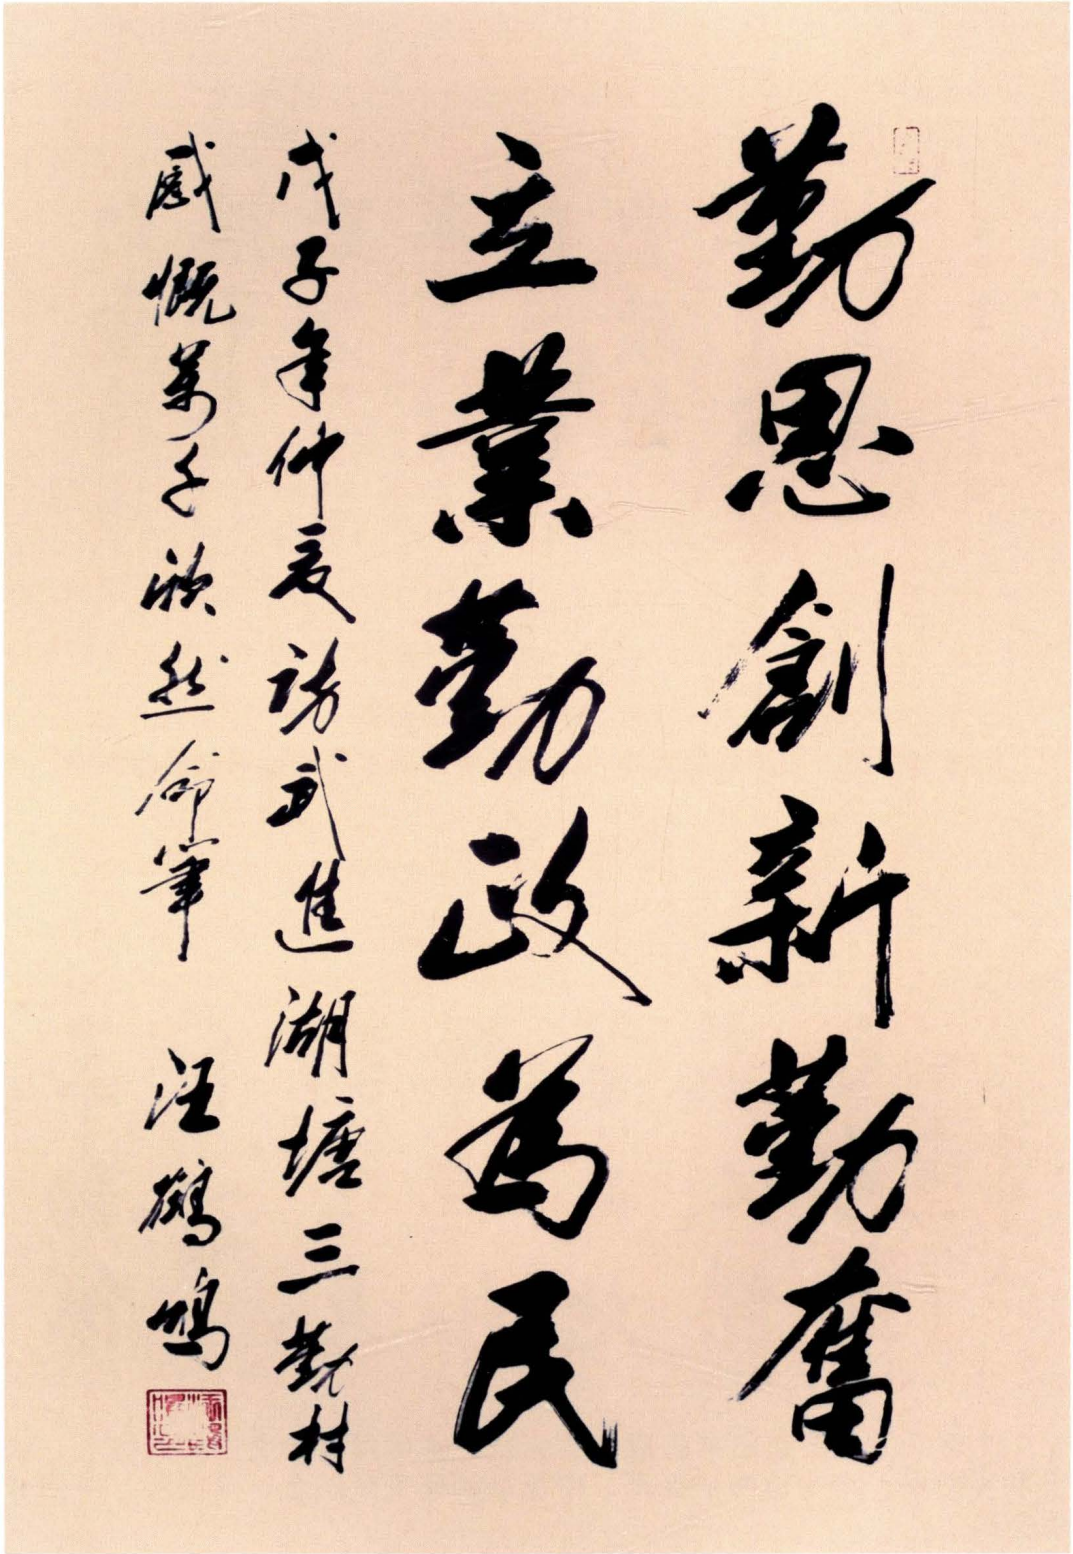 勤思創新勤奮
立業勤政為民
戊子年仲夏訪武進湖塘三勤村
感慨萬千欣然命筆 汪鶴鳴